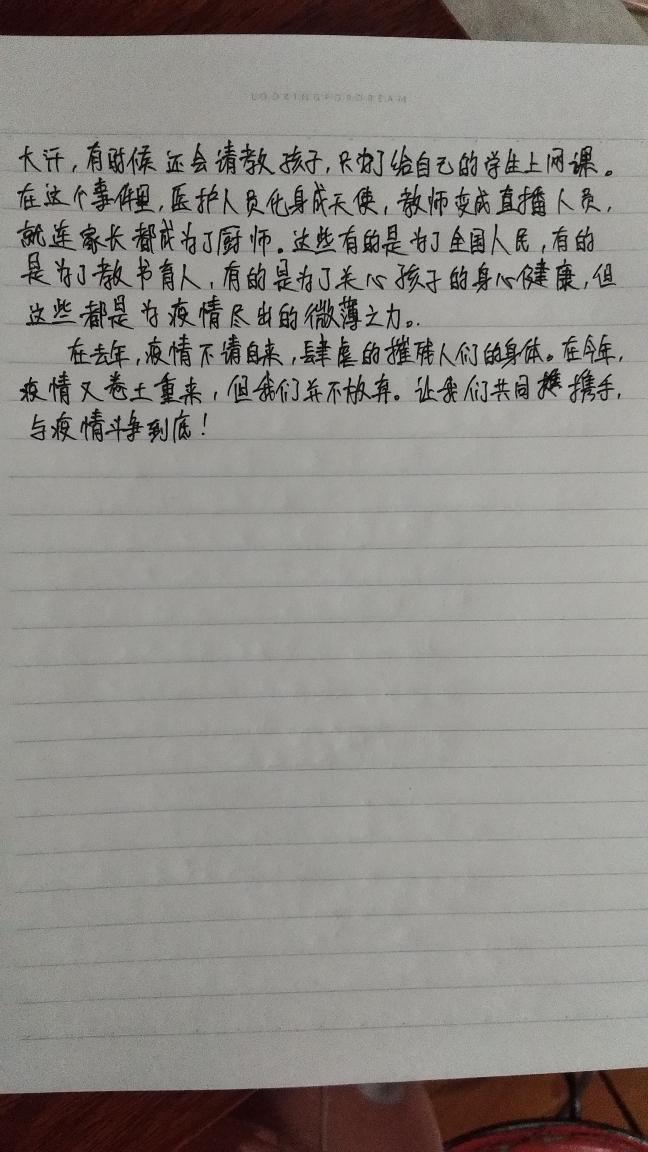 LOOKINGFORDREAM
大汗，有时候还会请教孩子，只为了给自己的学生上网课。
在这个事件里，医护人员化身成天使，教师变成直播人员，
就连家长都成为了厨师。这些有的是为了全国人民，有的
是为了教书育人，有的是为了关心孩子的身心健康，但
这些都是为疫情尽出的微薄之力。
在去年，疫情不请自来，肆虐的摧残人们的身体。在今年，
疫情又卷土重来，但我们并不放弃。让我们共同携手，
与疫情斗争到底！